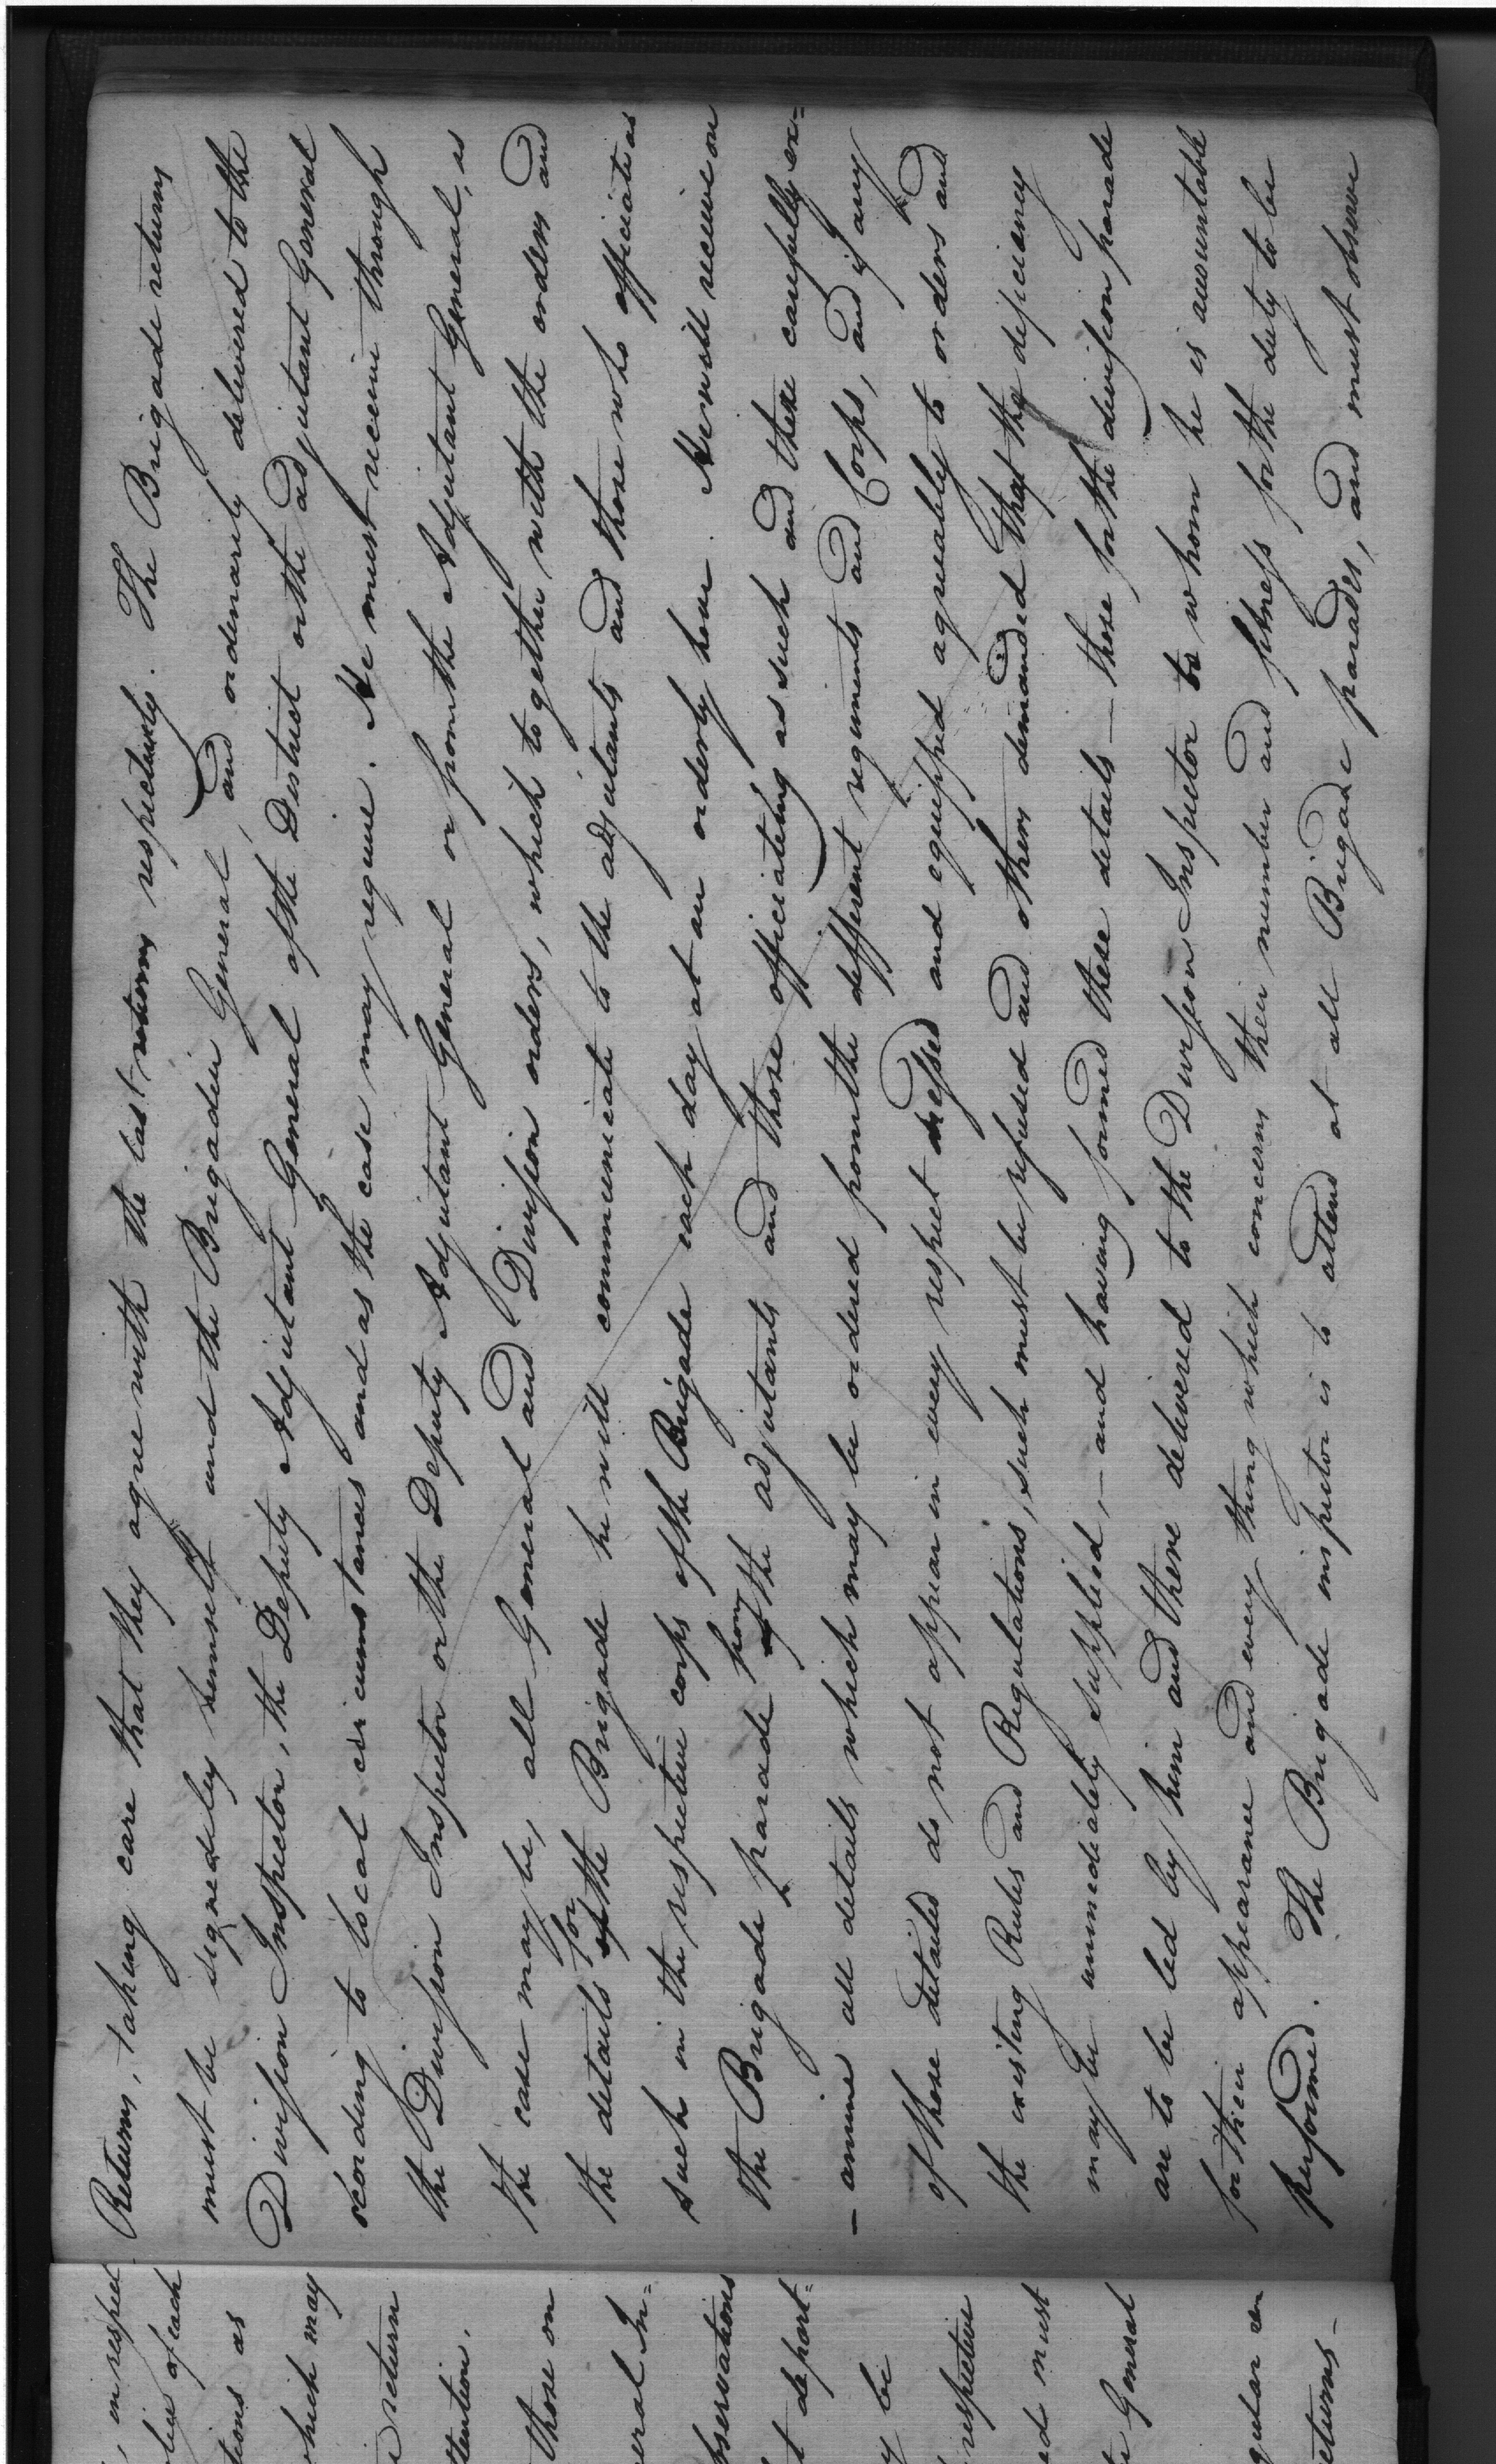 in respect
of each
tions as
which may
return
ttention.
those on
eral In=
bservations
t depart=
y be
respective
ed must
General
gular en
eturns -
Returns, taking care that they agree with the last returns respectively. The Brigade returns
must be signed by himself and the Brigadier General, and ordinarily delivered to the
Division Inspector, the Deputy Adjutant General of the District or the adjutant General
according to local circumstances and as the case may require. He must receive through
the Division Inspector or the Deputy Adjutant General or from the Adjutant General, as
the case may be, all General and Division orders, which together with the orders and
the details of for the Brigade he will communicate to the adjutants and those who officiate as
such in the respective corps of the Brigade each day at an orderly hour. He will receive on
the Brigade parade of from the adjutants and those officiating as such and there carefully ex=
- amine all details which may be ordered from the different regiments and Corps, and if any
of those detailed do not appear in every respect dressed and equipped agreeably to orders and
the existing Rules and Regulations, such must be refused and others demanded that the deficiency
may be immediately supplied, - and having formed these details — those for the division parade
are to be led by him and there delivered to the Division Inspector to whom he is accountable
for their appearance and every thing which concerns their number and fitness for the duty to be
performed. The Brigade inspector is to attend at all Brigade parades, and must observe